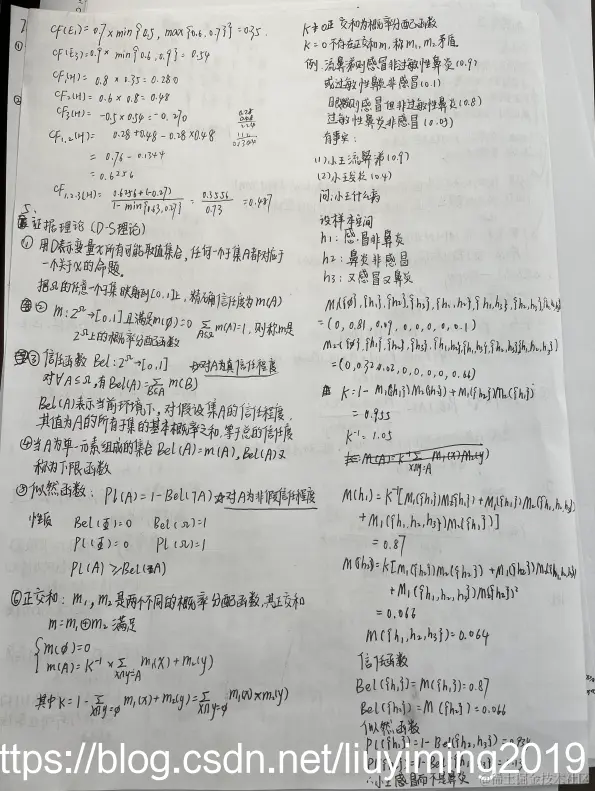 CF(E₁)=0.7×min{0.5, max{0.6,0.7}}=0.35
CF(E3)=0.9×min{0.6,0.9}=0.54
CF₁(H)= 0.8×0.35=0.280
CF₂(H)= 0.6×0.8=0.48
CF₃(H)= -0.5×0.54=-0.270
CF₁,₂(H)= 0.28+0.48-0.28×0.48
= 0.76-0.1344
= 0.6256
CF₁,₂,₃(H)= 0.6256+(-0.27) / 1-min{0.63,0.27} = 0.3556 / 0.73 =0.487
5.
证据理论(D-S理论)
① 用Ω表示变量x所有可能取值集合,任何一个子集A都对应于
一个关于x的命题。
把Ω的任意一个子集映射到[0,1]上,精确信任度为m(A)
② m:2^Ω→[0,1]且满足m(∅)=0 Σ_{A⊆Ω} m(A)=1,则称m是
2^Ω上的概率分配函数
③信任函数 Bel:2^Ω→[0,1] 对A为真信任程度
对∀A⊆Ω,有Bel(A)=Σ_{B⊆A} m(B)
Bel(A)表示当前环境下,对假设集A的信任程度,
其值为A的所有子集的基本概率之和,等于总的信任度
④当A为单一元素组成的集合 Bel(A)=m(A),Bel(A)又
称为下限函数
⑤似然函数: Pl(A)=1-Bel(¬A) 对A为非假信任程度
性质 Bel(Φ)=0 Bel(Ω)=1
Pl(Φ)=0 Pl(Ω)=1
Pl(A)≥Bel(A)
⑥正交和: m₁,m₂是两个不同的概率分配函数,其正交和
m=m₁⊕m₂ 满足
m(∅)=0
m(A)=K⁻¹×Σ_{x∩y=A} m₁(X)+m₂(y)
其中K=1-Σ_{x∩y=∅} m₁(x)+m₂(y)=Σ_{x∩y≠∅} m₁(x)×m₂(y)
K≠0正交和为概率分配函数
K=0不存在正交和m,称m₁,m₂矛盾
例:流鼻涕则感冒非过敏性鼻炎(0.9)
或过敏性鼻炎非感冒(0.1)
则感冒但非过敏性鼻炎(0.8)
过敏性鼻炎非感冒(0.05)
有事实:
(1)小王流鼻涕(0.9)
(2)小王发炎(0.4)
问:小王什么病
设样本空间
h1:感冒非鼻炎
h2:鼻炎非感冒
h3:又感冒又鼻炎
M₁({∅},{h₁},{h₂},{h₃},{h₁,h₂},{h₁,h₃},{h₂,h₃},{h₁,h₂,h₃})
=(0,0.81,0.09,0,0,0,0,0.1)
M₂({∅},{h₁},{h₂},{h₃},{h₁,h₂},{h₁,h₃},{h₂,h₃},{h₁,h₂,h₃})
=(0,0.32,0.02,0,0,0,0,0.66)
K=1-M₁{h₁}M₂{h₂}+M₁{h₂}M₂{h₁}
=0.955
K⁻¹=1.05
M(h₁)=K⁻¹[M₁({h₁})M₂({h₁})+M₁({h₁})M₂({h₁,h₂,h₃})
+M₁({h₁,h₂,h₃})M₂({h₁})]
=0.87
M({h₂})=K[M₁({h₂})M₂({h₂})+M₁({h₂})M₂({h₁,h₂,h₃})
+M₁({h₁,h₂,h₃})M({h₂})]
=0.066
M({h₁,h₂,h₃})=0.064
信任函数
Bel({h₁})=M({h₁})=0.87
Bel({h₂})=M({h₂})=0.066
似然函数
Pl({h₁})=1-Bel({h₂,h₃})=0.934
∴小王感冒而不是鼻炎
https://blog.csdn.net/liuyiming2019
@稀土掘金技术社区